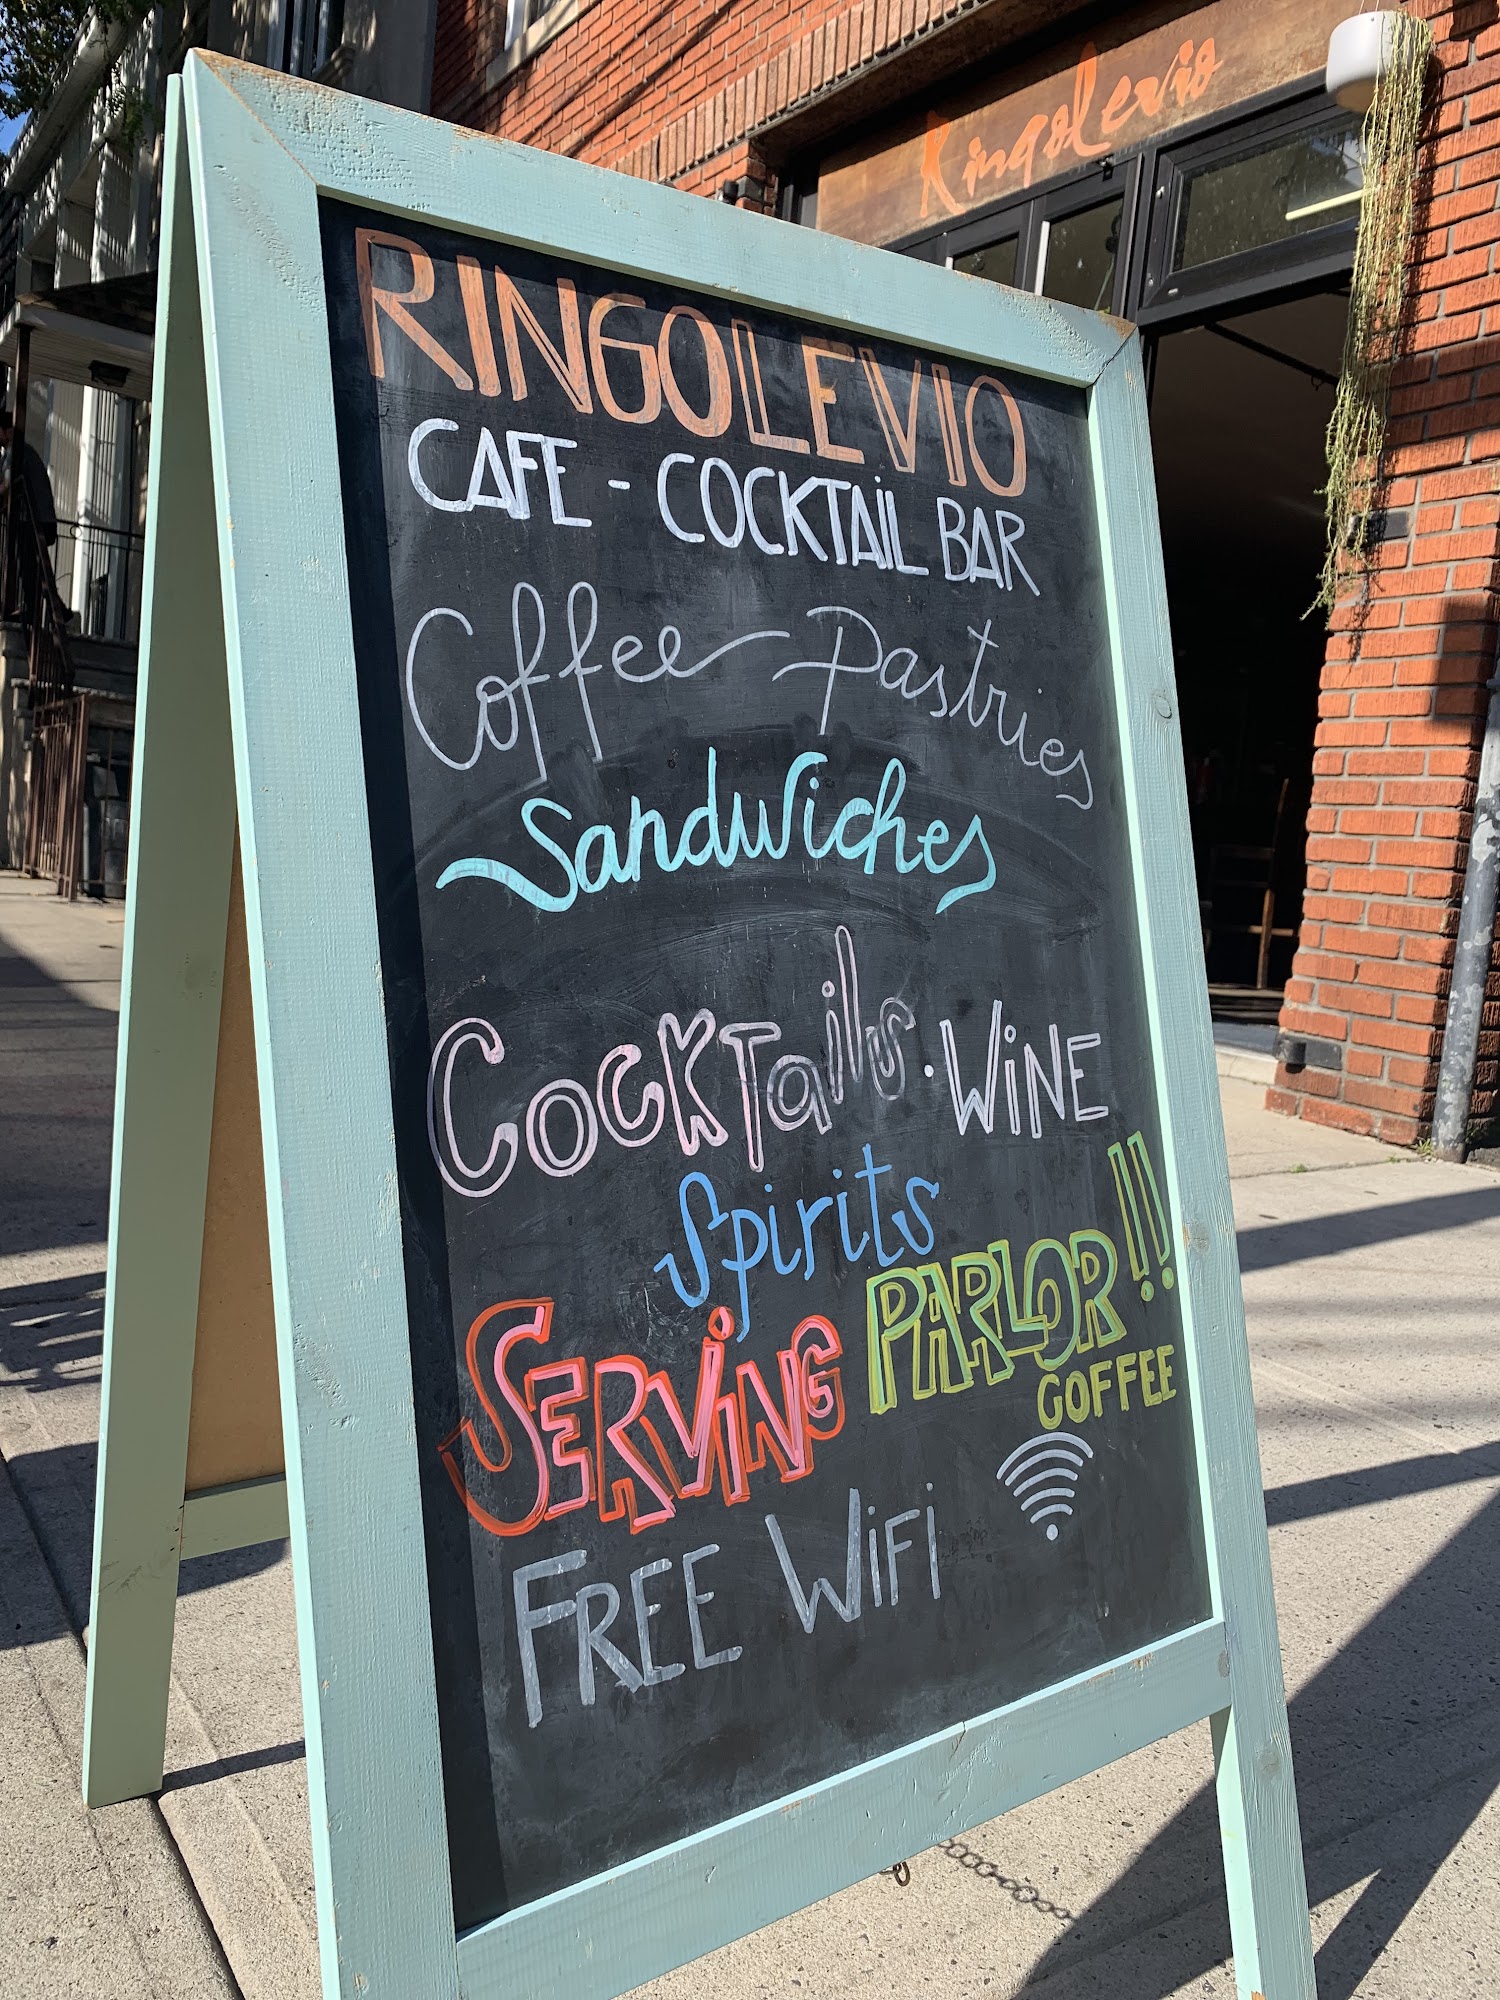 Ringolevio
RINGOLEVIO
CAFE - COCKTAIL BAR
Coffee Pastries
Sandwiches
COCKTails · WiNE
Spirits
SERViNG PARLOR!!
COFFEE
FREE WiFi